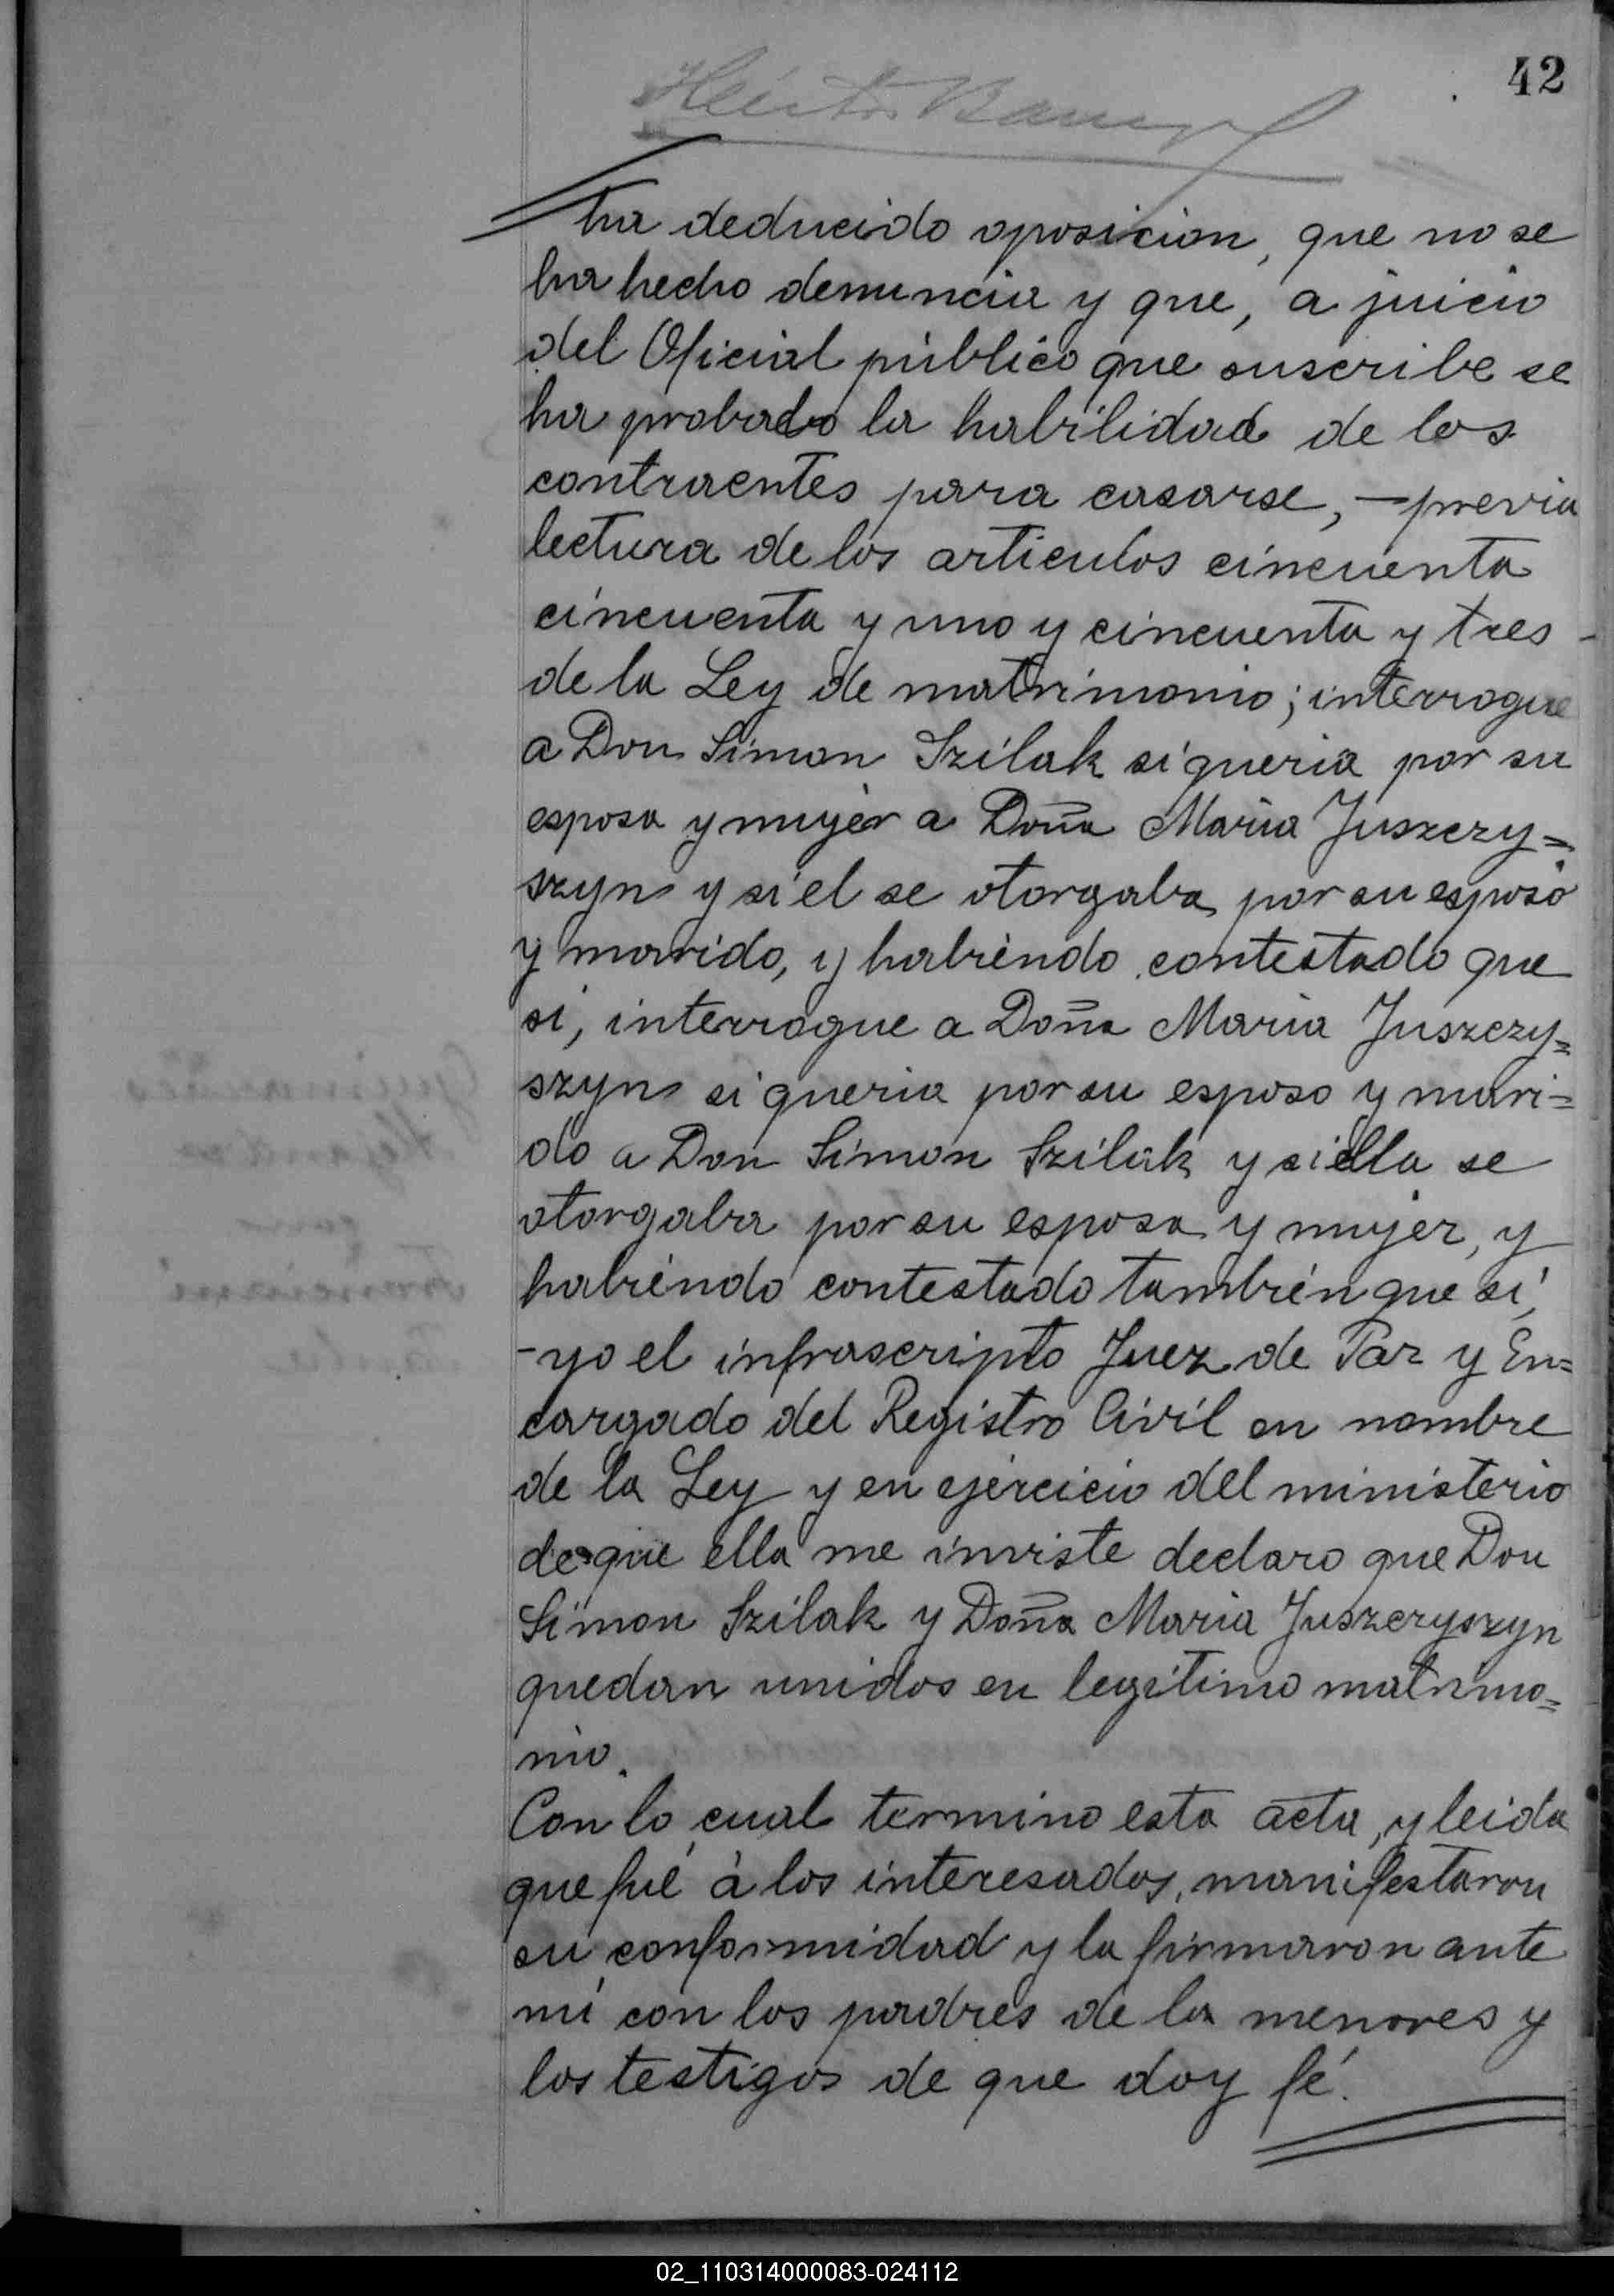 42
ha deducido oposicion, que no se
ha hecho denuncia y que, a juicio
del Oficial público que suscribe se
ha probado la habilidad de los
contraentes para casarse, — previa
lectura de los articulos cincuenta
cincuenta y uno y cincuenta y tres -
de la Ley de matrimonio; interrogue
a Don Simon Szilak si queria por su
esposa y mujer a Doña Maria Juszczy=
szyn y si el se otorgaba por su esposo
y marido, y habiendo contestado que
si, interrogue a Doña Maria Juszczy=
szyn si queria por su esposo y mari=
do a Don Simon Szilak y si ella se
otorgaba por su esposa y mujer, y
habiendo contestado tambien que si,
- yo el infrascripto Juez de Paz y En=
cargado del Registro Civil en nombre
de la Ley y en ejercicio del ministerio
de que ella me inviste declaro que Don
Simon Szilak y Doña Maria Juszczyszyn
quedan unidos en legitimo matrimo=
nio.
Con lo cual termino esta acta, y leida
que fué à los interesados, manifestaron
su conformidad y la firmaron ante
mi con los padres de la menores y
los testigos de que doy fé.
02_110314000083-024112